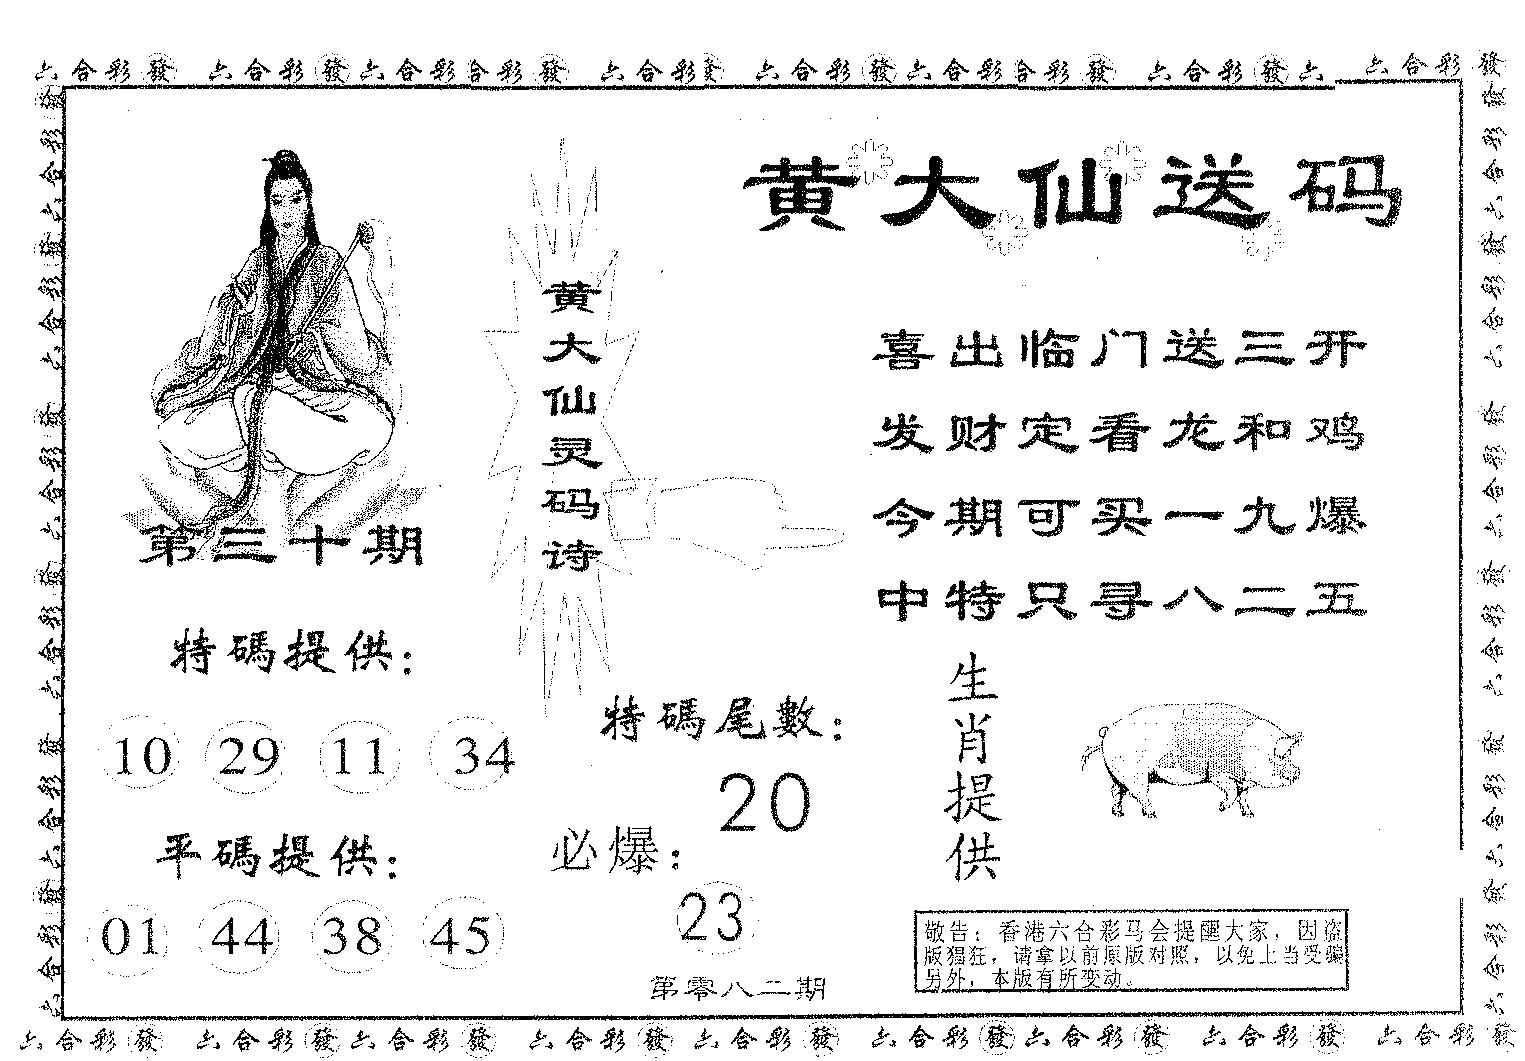 六合彩發 六合彩發六合彩合彩發 六合彩發 六合彩發六合彩合彩發 六合彩發六 六合彩發
黄大仙送码
黄大仙灵码诗
喜出临门送三开
发财定看龙和鸡
今期可买一九爆
中特只寻八二五
第三十期
特碼提供：
10 29 11 34
平碼提供：
01 44 38 45
特碼尾數：
20
必爆：
23
第零八二期
生肖提供
敬告：香港六合彩马会提醒大家，因盗
版猖狂，请拿以前原版对照，以免上当受骗
另外，本版有所变动。
六合彩發 六合彩發六合彩發 六合彩發 六合彩發 六合彩發六合彩發 六合彩發 六合彩發